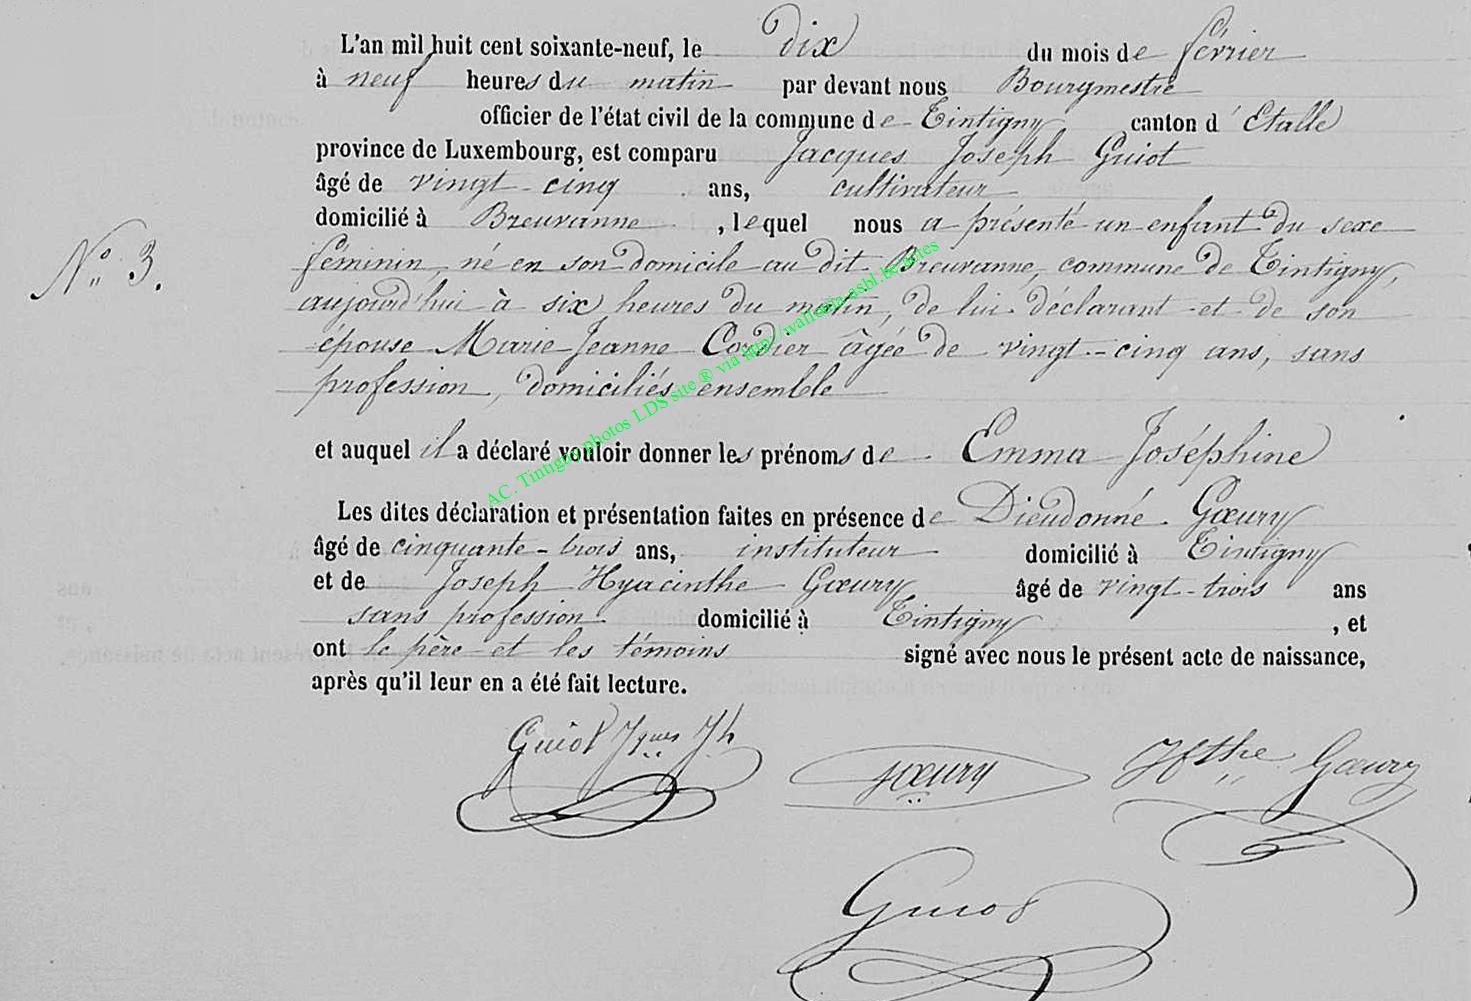 L'an mil huit cent soixante-neuf, le dix du mois de février
à neuf heures du matin par devant nous Bourgmestre
officier de l'état civil de la commune de Tintigny canton d'Etalle
province de Luxembourg, est comparu Jacques Joseph Guiot
âgé de vingt-cinq ans, cultivateur
domicilié à Breuvanne, lequel nous a présenté un enfant du sexe
N° 3.
féminin, né en son domicile au dit Breuvanne, commune de Tintigny,
aujourd'hui à six heures du matin, de lui déclarant et de son
épouse Marie Jeanne Cordier âgée de vingt-cinq ans, sans
profession, domiciliés ensemble
et auquel il a déclaré vouloir donner les prénoms de Emma Joséphine
AC. Tintigny photos LDS site ® via http://walleonia-asbl.be/actes
Les dites déclaration et présentation faites en présence de Dieudonné Gœury
âgé de cinquante-trois ans, instituteur domicilié à Tintigny
et de Joseph Hyacinthe Gœury âgé de vingt-trois ans
sans profession domicilié à Tintigny, et
ont le père et les témoins signé avec nous le présent acte de naissance,
après qu'il leur en a été fait lecture.
Guiot Jques Jh Gœury Hthe Gœury
Guiot